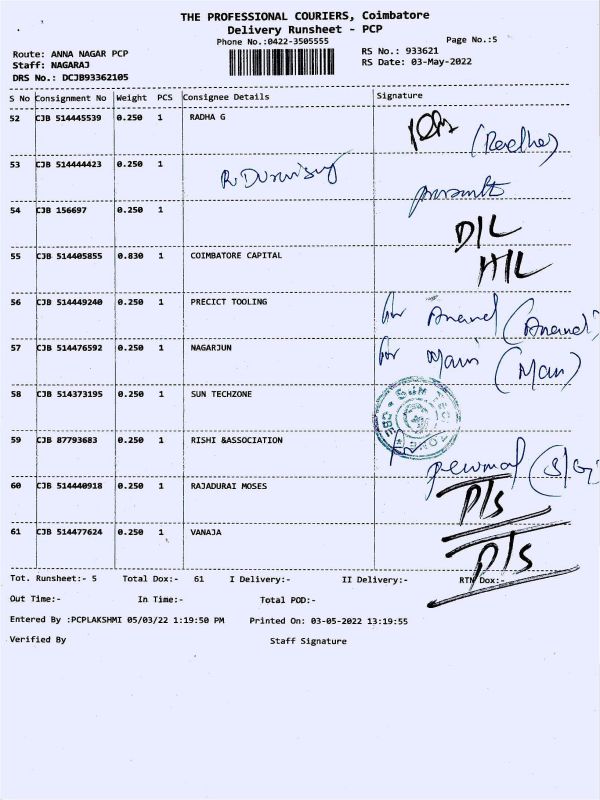 THE PROFESSIONAL COURIERS, Coimbatore
Delivery Runsheet - PCP
Phone No.:0422-3505555
Page No.:5
Route: ANNA NAGAR PCP
RS No.: 933621
Staff: NAGARAJ
RS Date: 03-May-2022
DRS No.: DCJB93362105
S No Consignment No Weight PCS Consignee Details Signature
52 CJB 514445539 0.250 1 RADHA G
(Radha)
53 CJB 514444423 0.250 1
54 CJB 156697 0.250 1 D/L
55 CJB 514405855 0.830 1 COIMBATORE CAPITAL H/L
56 CJB 514449240 0.250 1 PRECICT TOOLING for Anand (Anand)
57 CJB 514476592 0.250 1 NAGARJUN for Mani (Mani)
58 CJB 514373195 0.250 1 SUN TECHZONE
59 CJB 87793683 0.250 1 RISHI &ASSOCIATION
perumal (S/G)
60 CJB 514440918 0.250 1 RAJADURAI MOSES P/S
61 CJB 514477624 0.250 1 VANAJA P/S
Tot. Runsheet:- 5 Total Dox:- 61 I Delivery:- II Delivery:- RTN Dox:-
Out Time:- In Time:- Total POD:-
Entered By :PCPLAKSHMI 05/03/22 1:19:50 PM Printed On: 03-05-2022 13:19:55
Verified By Staff Signature